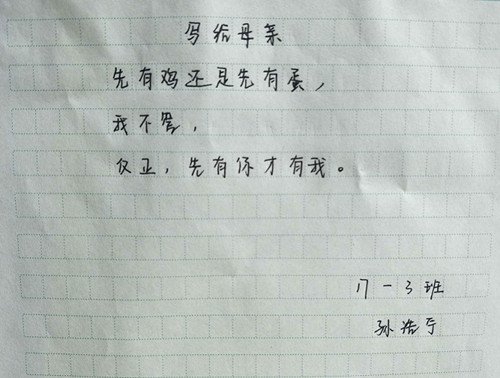 写给母亲
先有鸡还是先有蛋，
我不管，
仅正，先有你才有我。
17-3班
孙浩宁